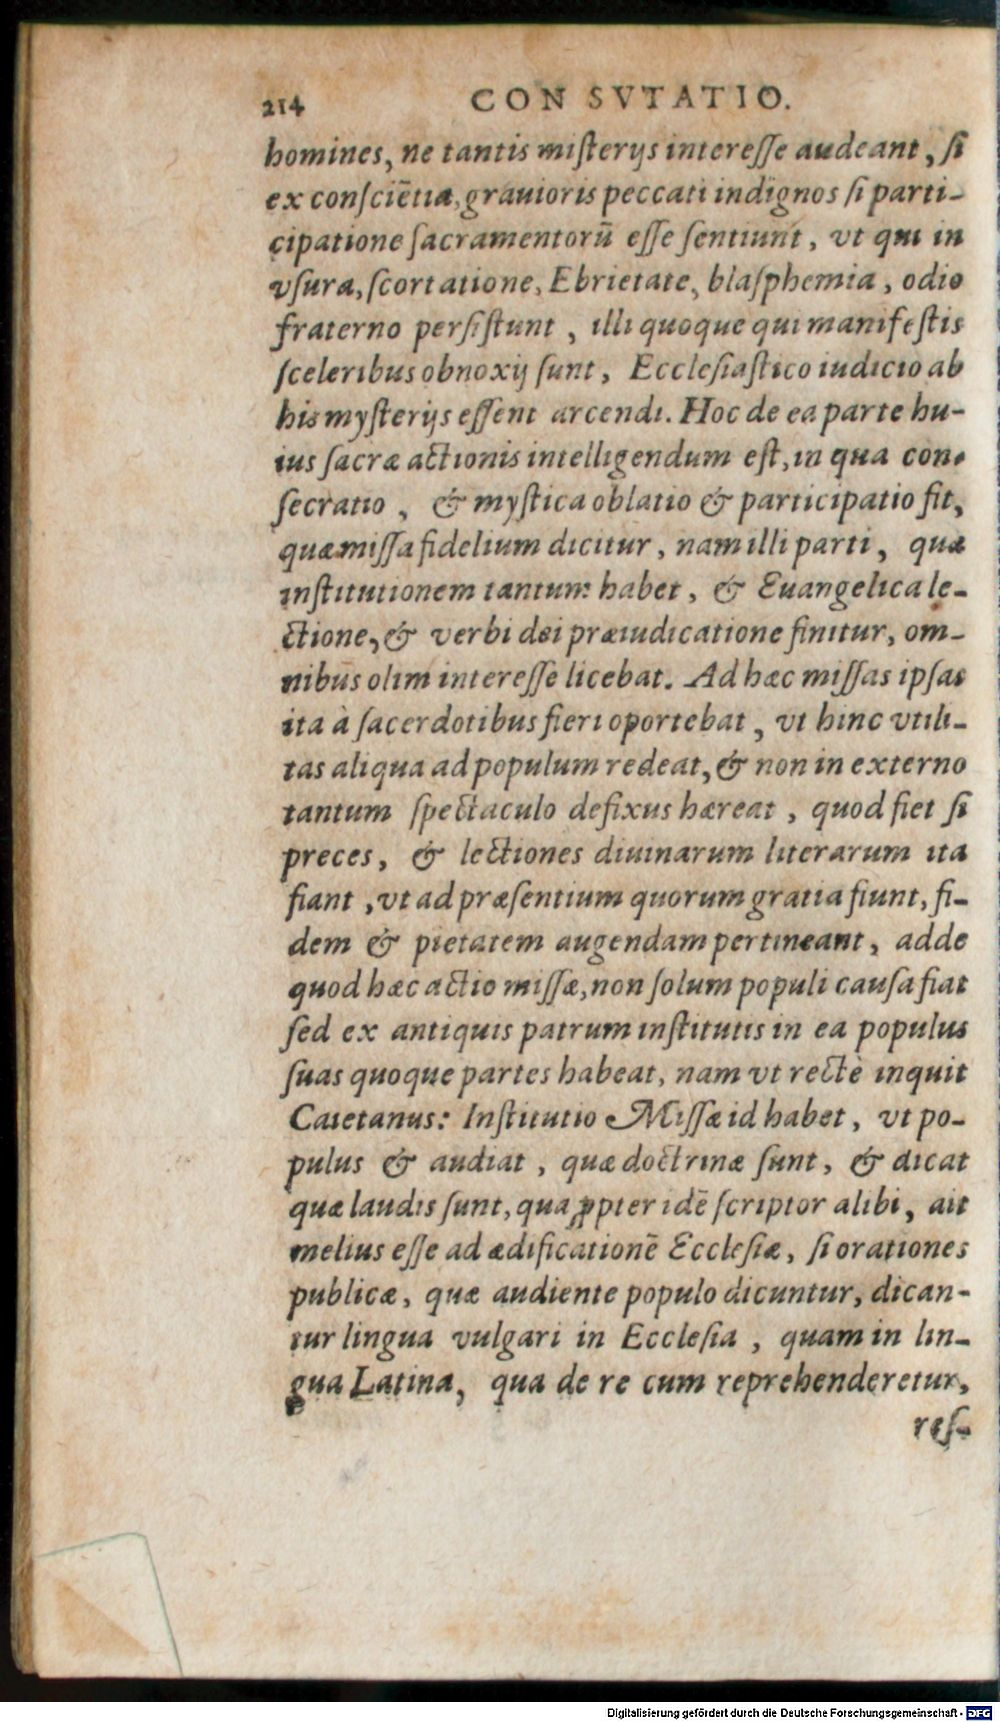 214 CONSVTATIO.
homines, ne tantis misterijs interesse audeant, si
ex consciẽtia, grauioris peccati indignos si parti-
cipatione sacramentorũ esse sentiunt, vt qui in
vsura, scortatione, Ebrietate, blasphemia, odio
fraterno persistunt, illi quoque qui manifestis
sceleribus obnoxij sunt, Ecclesiastico iudicio ab
his mysterijs essent arcendi. Hoc de ea parte hu-
ius sacræ actionis intelligendum est, in qua con-
secratio, & mystica oblatio & participatio fit,
quæ missa fidelium dicitur, nam illi parti, quæ
institutionem tantum habet, & Euangelica le-
ctione, & verbi dei præiudicatione finitur, om-
nibus olim interesse licebat. Ad hæc missas ipsas
ita à sacerdotibus fieri oportebat, vt hinc vtili-
tas aliqua ad populum redeat, & non in externo
tantum spectaculo defixus hæreat, quod fiet si
preces, & lectiones diuinarum literarum ita
fiant, vt ad præsentium quorum gratia fiunt, fi-
dem & pietatem augendam pertineant, adde
quod hæc actio missæ, non solum populi causa fiat
sed ex antiquis patrum institutis in ea populus
suas quoque partes habeat, nam vt rectè inquit
Caietanus: Institutio Missæ id habet, vt po-
pulus & audiat, quæ doctrinæ sunt, & dicat
quæ laudis sunt, qua ꝓpter idẽ scriptor alibi, ait
melius esse ad ædificationẽ Ecclesiæ, si orationes
publicæ, quæ audiente populo dicuntur, dican-
tur lingua vulgari in Ecclesia, quam in lin-
gua Latina, qua de re cum reprehenderetur,
res-
Digitalisierung gefördert durch die Deutsche Forschungsgemeinschaft - DFG